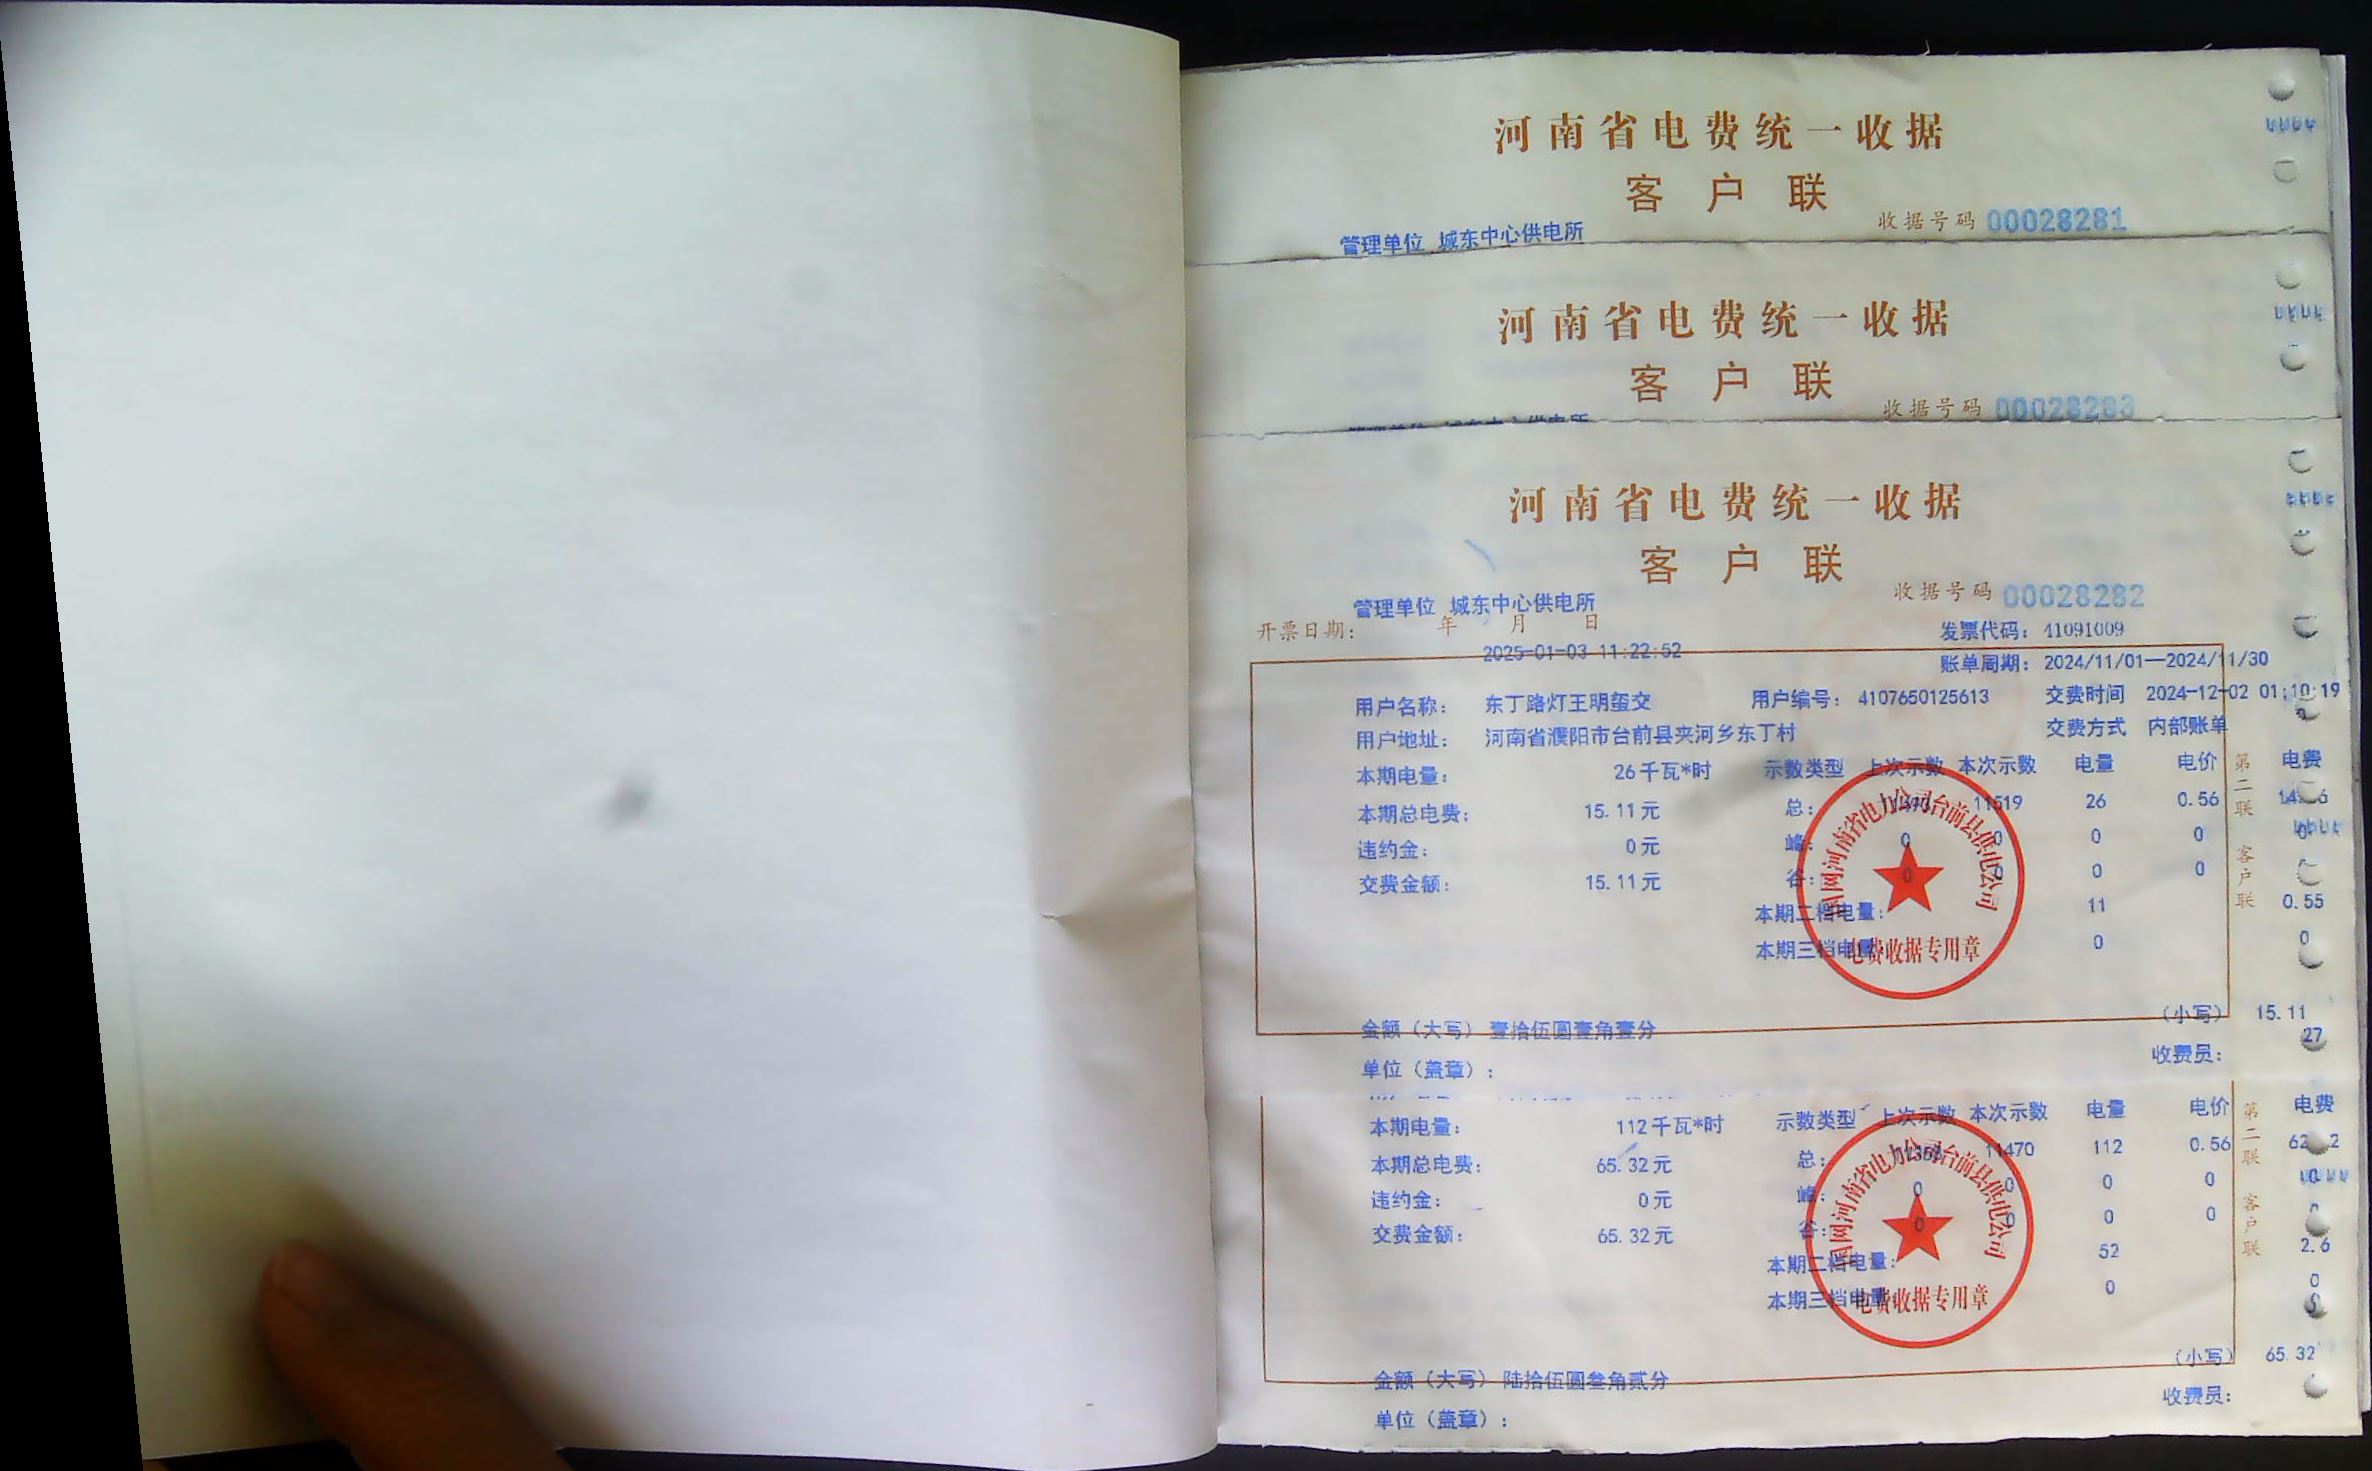 河南省电费统一收据
客户联
收据号码 00028281
管理单位 城东中心供电所
河南省电费统一收据
客户联
收据号码 00028283
河南省电费统一收据
客户联
收据号码 00028282
管理单位 城东中心供电所
开票日期： 年 月 日
发票代码：41091009
2025-01-03 11:22:52
账单周期：2024/11/01—2024/11/30
用户名称： 东丁路灯王明玺交 用户编号：4107650125613 交费时间 2024-12-02 01:10:19
用户地址： 河南省濮阳市台前县夹河乡东丁村 交费方式 内部账单
本期电量： 26千瓦*时 示数类型 上次示数 本次示数 电量 电价 电费
本期总电费： 15.11元 总： 11519 26 0.56
违约金： 0元 峰： 0 0 0 0 0
交费金额： 15.11元 谷： 0 0 0 0
本期二档电量： 11 0.55
本期三档电量 0 0
国网河南省电力公司台前县供电公司
电费收据专用章
第二联 客户联
金额（大写） 壹拾伍圆壹角壹分 （小写） 15.11
27
单位（盖章）： 收费员：
本期电量： 112千瓦*时 示数类型 上次示数 本次示数 电量 电价 电费
本期总电费： 65.32元 总： 11470 112 0.56
违约金： 0元 峰： 0 0 0 0 0
交费金额： 65.32元 谷： 0 0 0 0
本期二档电量： 52 2.6
本期三档电量 0 0
国网河南省电力公司台前县供电公司
电费收据专用章
第二联 客户联
金额（大写） 陆拾伍圆叁角贰分 （小写） 65.32
单位（盖章）： 收费员：